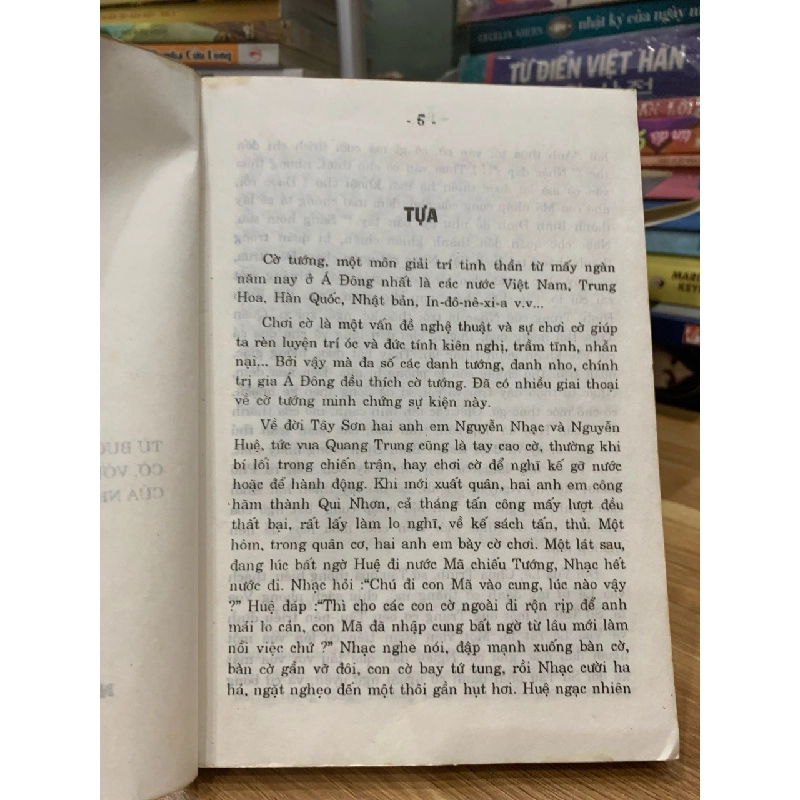 CECELIA AHERN
nhật ký của ngày
TỪ ĐIỂN VIỆT HÀN
- 5 -
TỰA
Cờ tướng, một môn giải trí tinh thần từ mấy ngàn
năm nay ở Á Đông nhất là các nước Việt Nam, Trung
Hoa, Hàn Quốc, Nhật bản, In-đô-nê-xi-a v.v...
Chơi cờ là một vấn đề nghệ thuật và sự chơi cờ giúp
ta rèn luyện trí óc và đức tính kiên nghị, trầm tĩnh, nhẫn
nại... Bởi vậy mà đa số các danh tướng, danh nho, chính
trị gia Á Đông đều thích cờ tướng. Đã có nhiều giai thoại
về cờ tướng minh chứng sự kiện này.
Về đời Tây Sơn hai anh em Nguyễn Nhạc và Nguyễn
Huệ, tức vua Quang Trung cũng là tay cao cờ, thường khi
bí lối trong chiến trận, hay chơi cờ để nghĩ kế gỡ nước
hoặc để hành động. Khi mới xuất quân, hai anh em công
hãm thành Qui Nhơn, cả tháng tấn công mấy lượt đều
thất bại, rất lấy làm lo nghĩ, về kế sách tấn, thủ. Một
hôm, trong quân cơ, hai anh em bày cờ chơi. Một lát sau,
đang lúc bất ngờ Huệ đi nước Mã chiếu Tướng, Nhạc hết
nước đi. Nhạc hỏi :"Chú đi con Mã vào cung, lúc nào vậy
?" Huệ đáp :"Thì cho các con cờ ngoài đi rộn rịp để anh
mải lo cản, con Mã đã nhập cung bất ngờ từ lâu mới làm
nổi việc chứ ?" Nhạc nghe nói, đập mạnh xuống bàn cờ,
bàn cờ gần vỡ đôi, con cờ bay tứ tung, rồi Nhạc cười ha
hả, ngặt nghẹo đến một thôi gần hụt hơi. Huệ ngạc nhiên